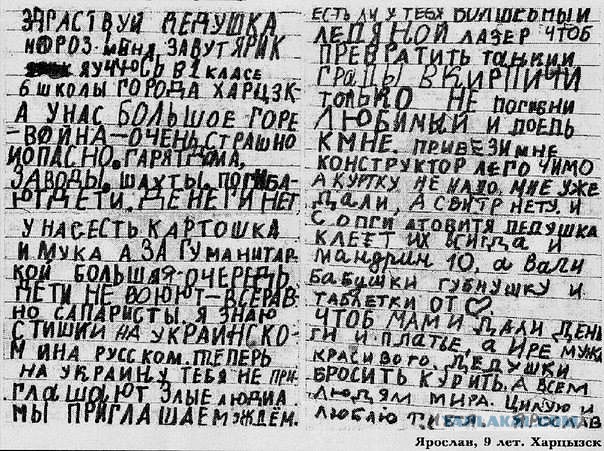 ЗДРАСТВУЙ ДЕДУШКА
МОРОЗ. МЕНЯ ЗАВУТ ЯРИК
Я УЧУЮСЬ В 1 КЛАСЕ
6 ШКОЛЫ ГОРОДА ХАРЦЗК-
А УНАС БОЛЬШОЕ ГОРЕ
-ВОЙНА-ОЧЕНЬ СТРАШНО
И ОПАСНО. ГАРЯТ ДОМА,
ЗАВОДЫ. ШАХТЫ. ПОГИБА-
ЮТ ДЕТИ. ДЕНЕГИ НЕТ
У НАС ЕСТЬ КАРТОШКА
И МУКА А ЗА ГУМАНИТАР-
КОЙ БОЛЬШАЯ ОЧЕРЕДЬ
ДЕТИ НЕ ВОЮЮТ-ВСЕРАВ-
НО САПАРИСТЫ. Я ЗНАЮ
СТИШКИ НА УКРАИНСКО-
М И НА РУССКОМ. ТЕПЕРЬ
НА УКРАИНУ ТЕБЯ НЕ ПРИ-
ГЛАШАЮТ ЗЛЫЕ ЛЮДИ А
МЫ ПРИГЛАШАЕМ ЖДЁМ.
ЕСТЬ ЛИ У ТЕБЯ ВОЛШЕБНЫЙ
ЛЕДЯНОЙ ЛАЗЕР ЧТОБ
ПРЕВРАТИТЬ ТАНКИИ
ГРАДЫ В КИРПИЧИ
ТОЛЬКО НЕ ПОГИБНИ
ЛЮБИМЫЙ И ПОЕДЬ
К МНЕ. ПРИВЕЗИ МНЕ
КОНСТРУКТОР ЛЕГО ЧИМО
А КУРТКУ НЕ НАДО, МНЕ УЖЕ
ДАЛИ, А СВИТР НЕТУ. И
САПГИ А ТО ВИТЯ ДЕДУШКА
КЛЕЕТ ИХ ВСИГДА И
МАНДРИН 10, А ВАЛИ
БАБУШКИ ГУБНУШКУ И
ТАБЛЕТКИ ОТ ♡.
ЧТОБ МАМ И ДАЛИ ДЕНЬ
ГИ И ПЛАТЬЕ, А ИРЕ МУЖА
КРАСИВОГО. ДЕДУШКИ
БРОСИТЬ КУРИТЬ. А ВСЕМ
ЛЮДЯМ МИРА. ЦИЛУЮ И
ЛЮБЛЮ
Ярослав, 9 лет. Харцызск